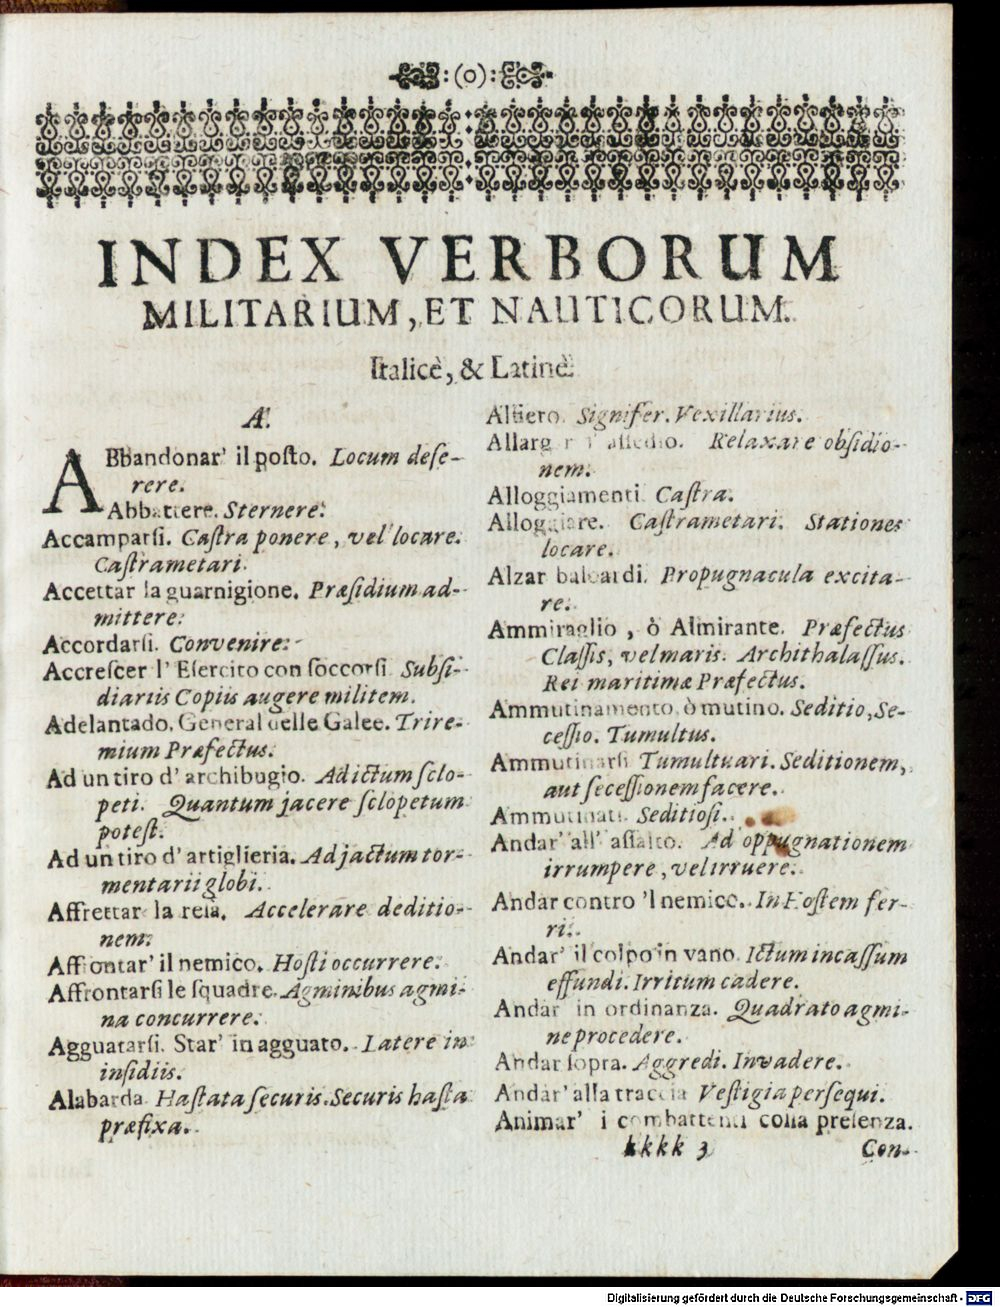 :(o):
INDEX VERBORUM
MILITARIUM, ET NAUTICORUM.
Italicè, & Latinè.
A.
ABbandonar' il poſto. Locum deſe-
rere.
Abbattere. Sternere.
Accamparſi. Caſtra ponere, vel locare.
Caſtrametari.
Accettar la guarnigione. Præſidium ad-
mittere.
Accordarſi. Convenire.
Accreſcer l' Eſercito con ſoccorſi. Subſi-
diariis Copiis augere militem.
Adelantado. General delle Galee. Trire-
mium Præfectus.
Ad un tiro d' archibugio. Ad ictum ſclo-
peti. Quantum jacere ſclopetum
poteſt.
Ad un tiro d' artiglieria. Ad jactum tor-
mentarii globi.
Affrettar la reſa. Accelerare deditio-
nem.
Affrontar' il nemico. Hoſti occurrere.
Affrontarſi le ſquadre. Agminibus agmi-
na concurrere.
Agguatarſi. Star' in agguato. Latere in
inſidiis.
Alabarda. Haſtata ſecuris. Securis haſta
præfixa.
Alfiero. Signifer. Vexillarius.
Allargar l' aſſedio. Relaxare obſidio-
nem.
Alloggiamenti. Caſtra.
Alloggiare. Caſtrametari. Stationes
locare.
Alzar baloardi. Propugnacula excita-
re.
Ammiraglio, ò Almirante. Præfectus
Claſſis, vel maris. Archithalaſſus.
Rei maritimæ Præfectus.
Ammutinamento, ò mutino. Seditio, Se-
ceſſio. Tumultus.
Ammutinarſi. Tumultuari. Seditionem,
aut ſeceſſionem facere.
Ammutinati. Seditioſi.
Andar' all' aſſalto. Ad oppugnationem
irrumpere, vel irruere.
Andar contro 'l nemico. In Hoſtem fer-
ri.
Andar' il colpo in vano. Ictum incaſſum
effundi. Irritum cadere.
Andar in ordinanza. Quadrato agmi-
ne procedere.
Andar ſopra. Aggredi. Invadere.
Andar' alla traccia. Veſtigia perſequi.
Animar' i combattenti colla preſenza.
kkkk 3 Con-
Digitalisierung gefördert durch die Deutsche Forschungsgemeinschaft - DFG